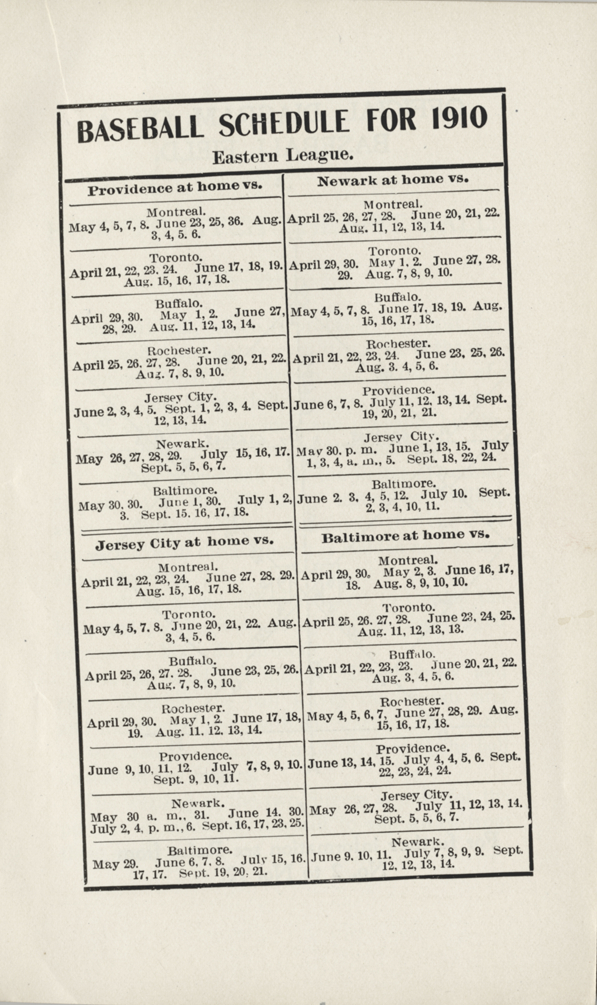 BASEBALL SCHEDULE FOR 1910
Eastern League.
Providence at home vs.
Montreal.
May 4, 5, 7, 8. June 23, 25, 36. Aug.
3, 4, 5. 6.
Toronto.
April 21, 22, 23, 24. June 17, 18, 19.
Aug. 15, 16, 17, 18.
Buffalo.
April 29, 30. May 1, 2. June 27,
28, 29. Aug. 11, 12, 13, 14.
Rochester.
April 25, 26, 27, 28. June 20, 21, 22.
Aug. 7, 8. 9, 10.
Jersey City.
June 2, 3, 4, 5. Sept. 1, 2, 3, 4. Sept.
12, 13, 14.
Newark.
May 26, 27, 28, 29. July 15, 16, 17.
Sept. 5, 5, 6, 7.
Baltimore.
May 30, 30. June 1, 30. July 1, 2,
3. Sept. 15, 16, 17, 18.
Newark at home vs.
Montreal.
April 25, 26, 27, 28. June 20, 21, 22.
Aug. 11, 12, 13, 14.
Toronto.
April 29, 30. May 1, 2. June 27, 28.
29. Aug. 7, 8, 9, 10.
Buffalo.
May 4, 5, 7, 8. June 17, 18, 19. Aug.
15, 16, 17, 18.
Rochester.
April 21, 22, 23, 24. June 23, 25, 26.
Aug. 3. 4, 5, 6.
Providence.
June 6, 7, 8. July 11, 12, 13, 14. Sept.
19, 20, 21, 21.
Jersey City.
May 30, p. m. June 1, 13, 15. July
1, 3, 4, a. m., 5. Sept. 18, 22, 24.
Baltimore.
June 2. 3, 4, 5, 12. July 10. Sept.
2, 3, 4, 10, 11.
Jersey City at home vs.
Montreal.
April 21, 22, 23, 24. June 27, 28. 29.
Aug. 15, 16, 17, 18.
Toronto.
May 4, 5, 7. 8. June 20, 21, 22. Aug.
3, 4, 5. 6.
Buffalo.
April 25, 26, 27. 28. June 23, 25, 26.
Aug. 7, 8, 9, 10.
Rochester.
April 29, 30. May 1, 2. June 17, 18,
19. Aug. 11, 12. 13, 14.
Providence.
June 9, 10, 11, 12. July 7, 8, 9, 10.
Sept. 9, 10, 11.
Newark.
May 30 a. m., 31. June 14. 30.
July 2, 4, p. m., 6. Sept. 16, 17, 23, 25.
Baltimore.
May 29. June 6, 7, 8. July 15, 16.
17, 17. Sept. 19, 20, 21.
Baltimore at home vs.
Montreal.
April 29, 30. May 2, 3. June 16, 17,
18. Aug. 8, 9, 10, 10.
Toronto.
April 25, 26. 27, 28. June 23, 24, 25.
Aug. 11, 12, 13, 13.
Buffalo.
April 21, 22, 23, 23. June 20, 21, 22.
Aug. 3, 4, 5, 6.
Rochester.
May 4, 5, 6, 7. June 27, 28, 29. Aug.
15, 16, 17, 18.
Providence.
June 13, 14, 15. July 4, 4, 5, 6. Sept.
22, 23, 24, 24.
Jersey City.
May 26, 27, 28. July 11, 12, 13, 14.
Sept. 5, 5, 6, 7.
Newark.
June 9, 10, 11. July 7, 8, 9, 9. Sept.
12, 12, 13, 14.